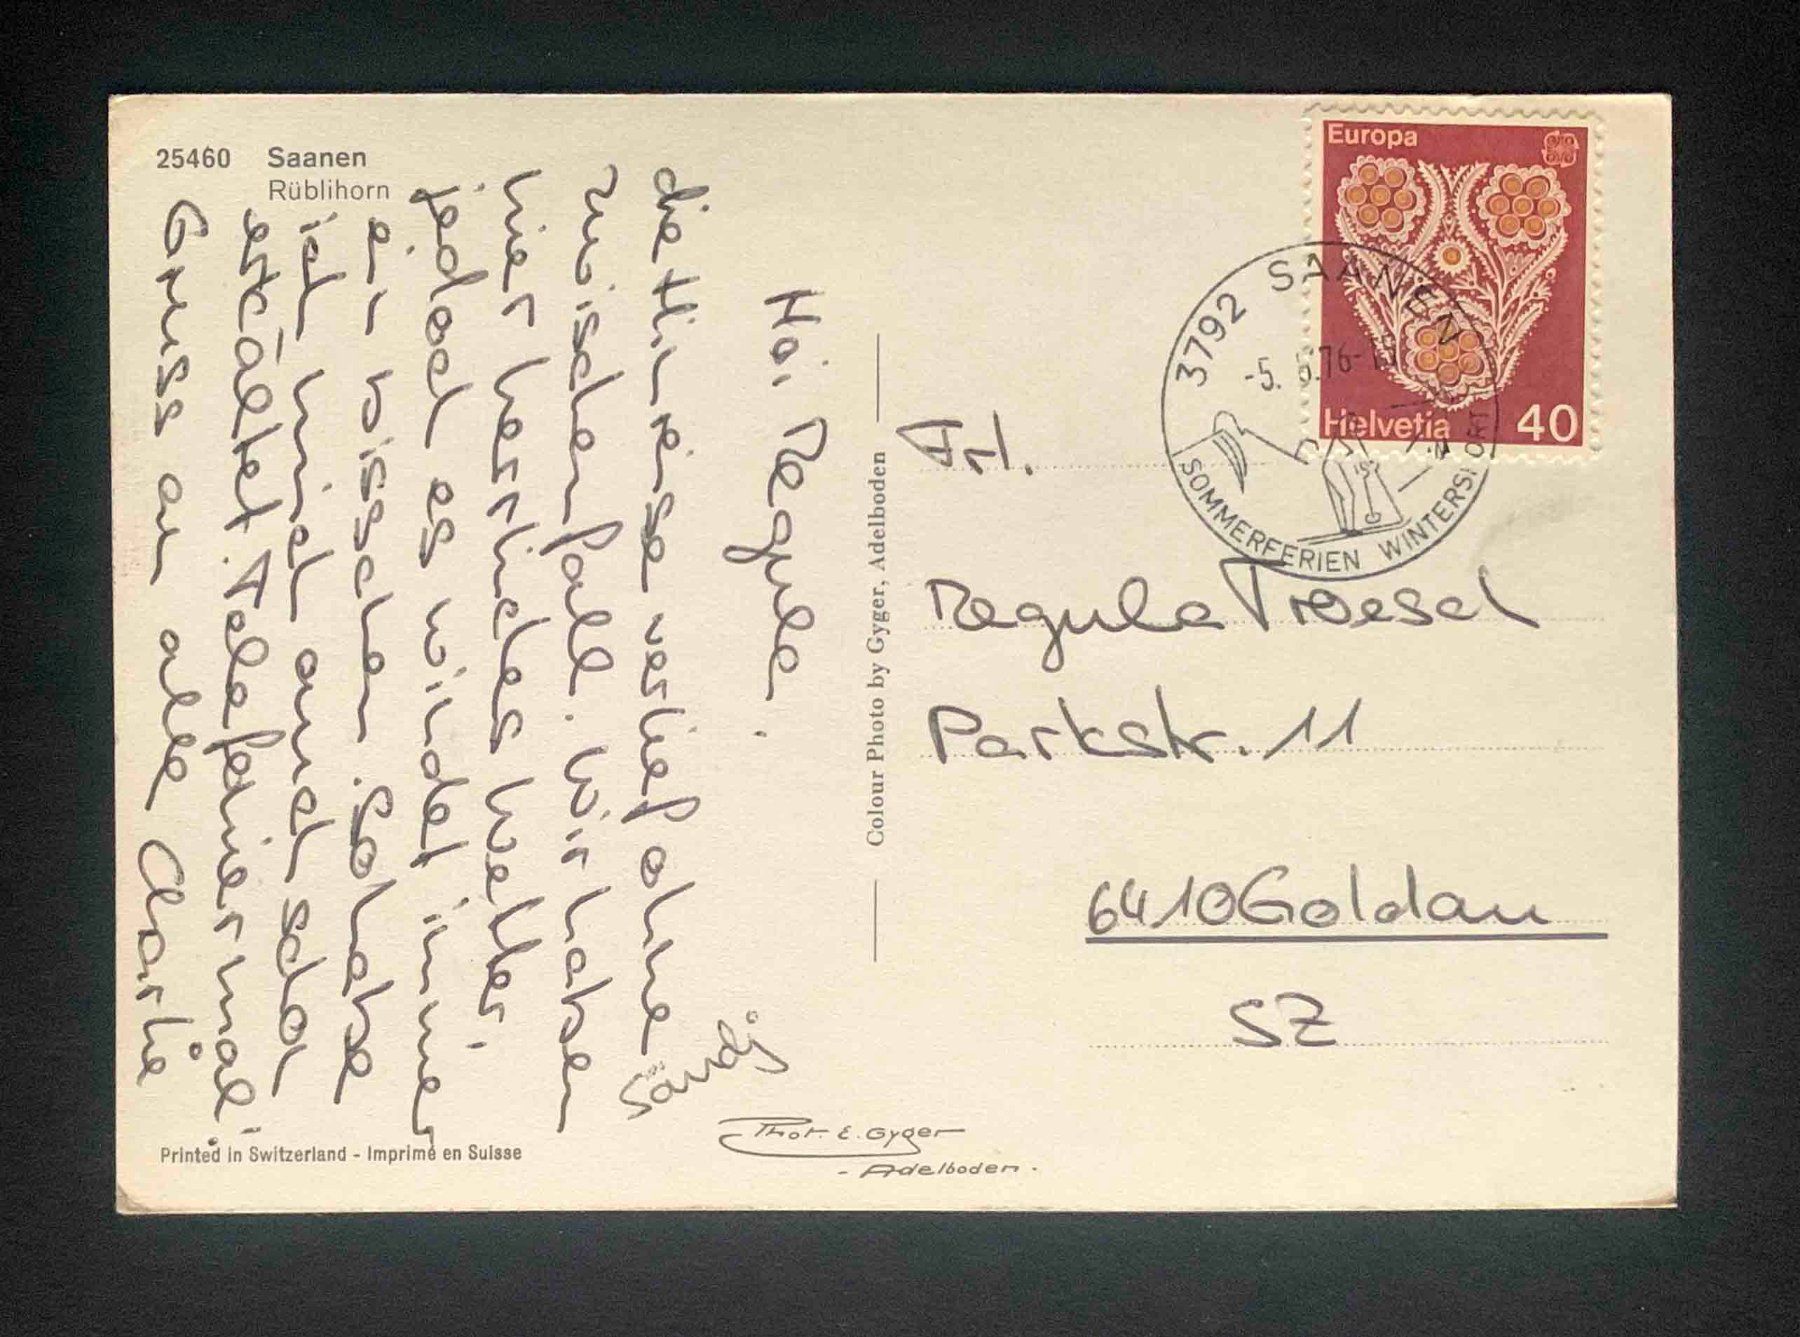 25460 Saanen
Rüblihorn
Hoi Regula.
die Hinreise verlief ohne
Zwischenfall. Wir haben
hier herrliches Wetter
jedoch es windet immer
ein bisschen. So habe
ich mich auch schon
erkältet. Telefonier mal.
Gruss an alle Charlie
Printed in Switzerland - Imprimé en Suisse
Phot. E. Gyger
- Adelboden -
Colour Photo by Gyger, Adelboden
Europa
Helvetia 40
3792 SAANEN
-5. 6.76-19
SOMMERFERIEN WINTERSPORT
Frl.
Regula Troesch
Parkstr. 11
6410 Goldau
SZ